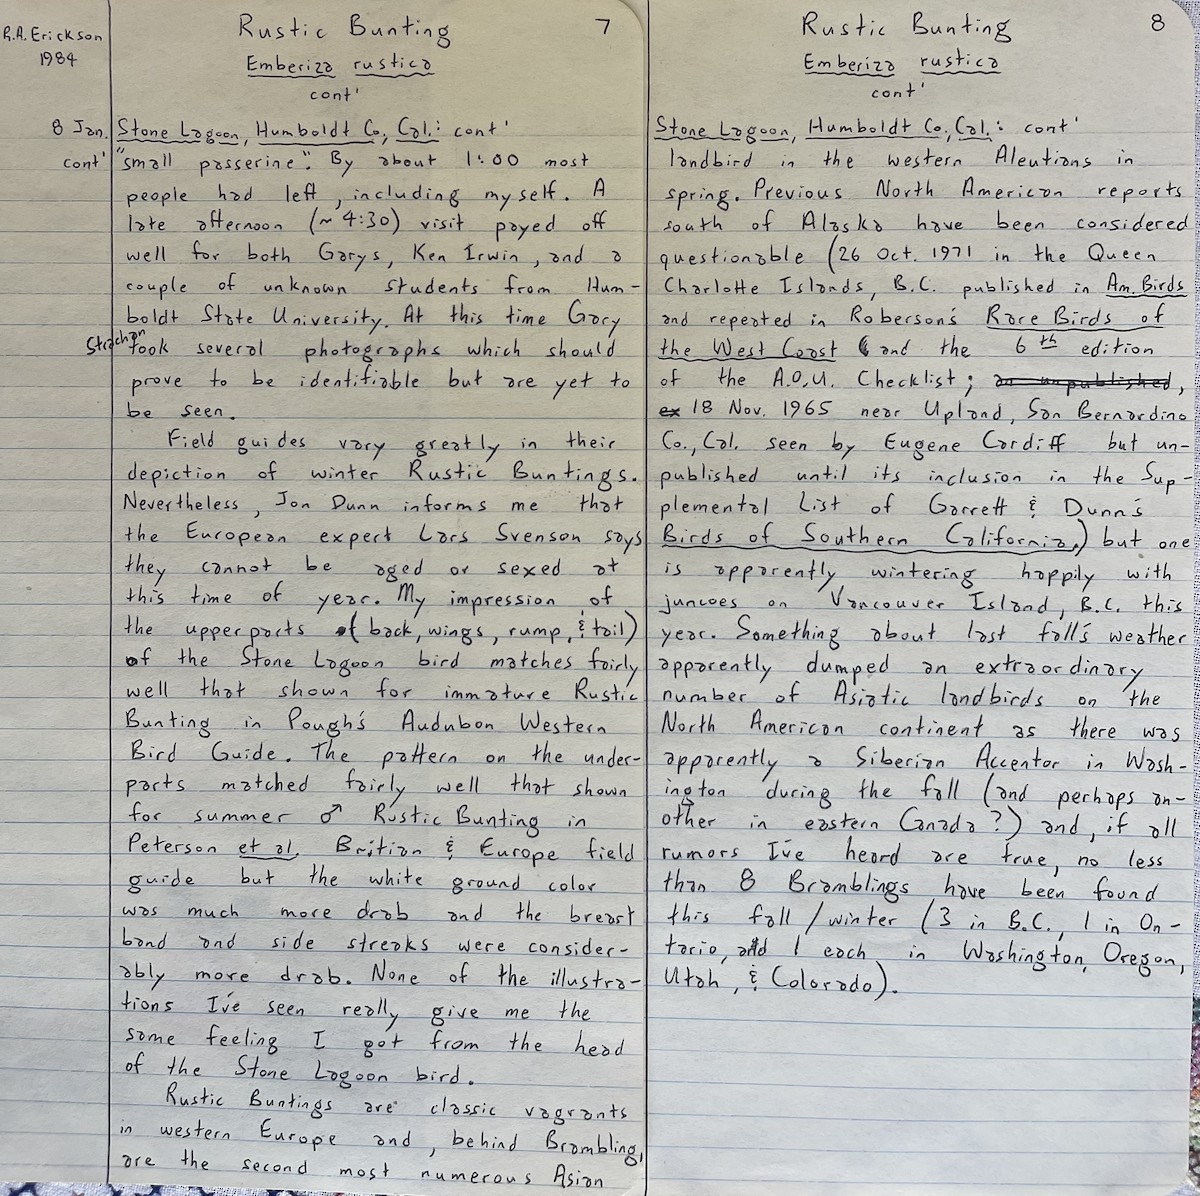 R.A. Erickson
1984
Rustic Bunting 7
Emberiza rustica
cont'
8 Jan. Stone Lagoon, Humboldt Co, Cal.: cont'
cont' "small passerine". By about 1:00 most
people had left, including myself. A
late afternoon (~ 4:30) visit payed off
well for both Garys, Ken Irwin, and a
couple of unknown students from Hum-
boldt State University. At this time Gary
Strachan took several photographs which should
prove to be identifiable but are yet to
be seen.
Field guides vary greatly in their
depiction of winter Rustic Buntings.
Nevertheless, Jon Dunn informs me that
the European expert Lars Svenson says
they cannot be aged or sexed at
this time of year. My impression of
the upperparts (back, wings, rump, & tail)
of the Stone Lagoon bird matches fairly
well that shown for immature Rustic
Bunting in Pough's Audubon Western
Bird Guide. The pattern on the under-
parts matched fairly well that shown
for summer ♂ Rustic Bunting in
Peterson et al. Britian & Europe field
guide but the white ground color
was much more drab and the breast
band and side streaks were consider-
ably more drab. None of the illustra-
tions I've seen really give me the
same feeling I got from the head
of the Stone Lagoon bird.
Rustic Buntings are classic vagrants
in western Europe and, behind Brambling,
are the second most numerous Asian
Rustic Bunting 8
Emberiza rustica
cont'
Stone Lagoon, Humboldt Co, Cal.: cont'
landbird in the western Aleutians in
spring. Previous North American reports
south of Alaska have been considered
questionable (26 Oct. 1971 in the Queen
Charlotte Islands, B.C. published in Am. Birds
and repeated in Roberson's Rare Birds of
the West Coast and the 6th edition
of the A.O.U. Checklist; an unpublished,
ex 18 Nov. 1965 near Upland, San Bernardino
Co., Cal. seen by Eugene Cardiff but un-
published until its inclusion in the Sup-
plemental List of Garrett & Dunn's
Birds of Southern California,) but one
is apparently wintering happily with
juncoes on Vancouver Island, B.C. this
year. Something about last fall's weather
apparently dumped an extraordinary
number of Asiatic landbirds on the
North American continent as there was
apparently a Siberian Accentor in Wash-
ington during the fall (and perhaps an-
other in eastern Canada?) and, if all
rumors I've heard are true, no less
than 8 Bramblings have been found
this fall/winter (3 in B.C., 1 in On-
tario, and 1 each in Washington, Oregon,
Utah, & Colorado).